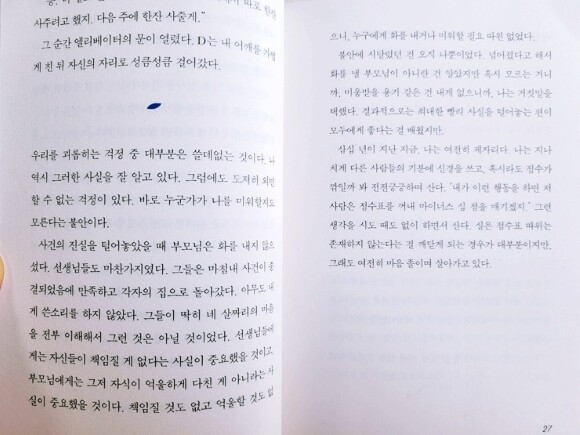 사주려고 했지. 다음 주에 한잔 사줄게."
그 순간 엘리베이터의 문이 열렸다. D는 내 어깨를 가볍
게 친 뒤 자신의 자리로 성큼성큼 걸어갔다.
우리를 괴롭히는 걱정 중 대부분은 쓸데없는 것이다. 나
역시 그러한 사실을 잘 알고 있다. 그럼에도 도저히 외면
할 수 없는 걱정이 있다. 바로 누군가가 나를 미워할지도
모른다는 불안이다.
사건의 진실을 털어놓았을 때 부모님은 화를 내지 않으
셨다. 선생님들도 마찬가지였다. 그들은 마침내 사건이 종
결되었음에 만족하고 각자의 집으로 돌아갔다. 아무도 내
게 쓴소리를 하지 않았다. 그들이 딱히 네 살짜리의 마음
을 전부 이해해서 그런 것은 아닐 것이었다. 선생님들에
게는 자신들이 책임질 게 없다는 사실이 중요했을 것이고
부모님에게는 그저 자식이 억울하게 다친 게 아니라는 사
실이 중요했을 것이다. 책임질 것도 없고 억울할 것도 없
으니, 누구에게 화를 내거나 미워할 필요 따윈 없었다.
불안에 시달렸던 건 오직 나뿐이었다. 넘어졌다고 해서
화를 낼 부모님이 아니란 건 알았지만 혹시 모르는 거니
까, 미움받을 용기 같은 건 내게 없으니까, 나는 거짓말을
택했다. 결과적으로는 최대한 빨리 사실을 털어놓는 편이
모두에게 좋다는 걸 배웠지만.
삼십 년이 지난 지금, 나는 여전히 제자리다. 나는 지나
치게 다른 사람들의 기분에 신경을 쓰고, 혹시라도 점수가
깎일까 봐 전전긍긍하며 산다. "내가 이런 행동을 하면 저
사람은 점수표를 꺼내 마이너스 십 점을 매기겠지." 그런
생각을 시도 때도 없이 하면서 산다. 실은 점수표 따위는
존재하지 않는다는 걸 깨닫게 되는 경우가 대부분이지만,
그래도 여전히 마음 졸이며 살아가고 있다.
27